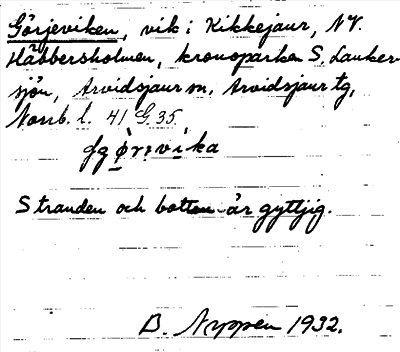 Görjeviken, vik i Kikkejaur, NV.
Häbbersholmen, kronoparken S. Lauker-
sjön, Arvidsjaur sn, Arvidsjaur tg,
Norrb. l. 41 G 35.
Stranden och botten är gyttjig.
B. Nyppen 1932.